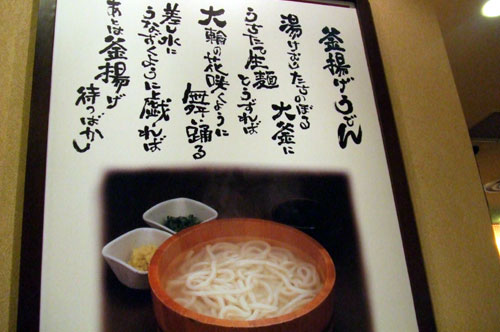 釜揚げうどん
湯けむりたちのぼる
大釜に
うちたて生麺
とうずれば
大輪の花咲くように
舞い踊る
差し水に
うなずくように戯れば
あとは釜揚げ
待つばかし